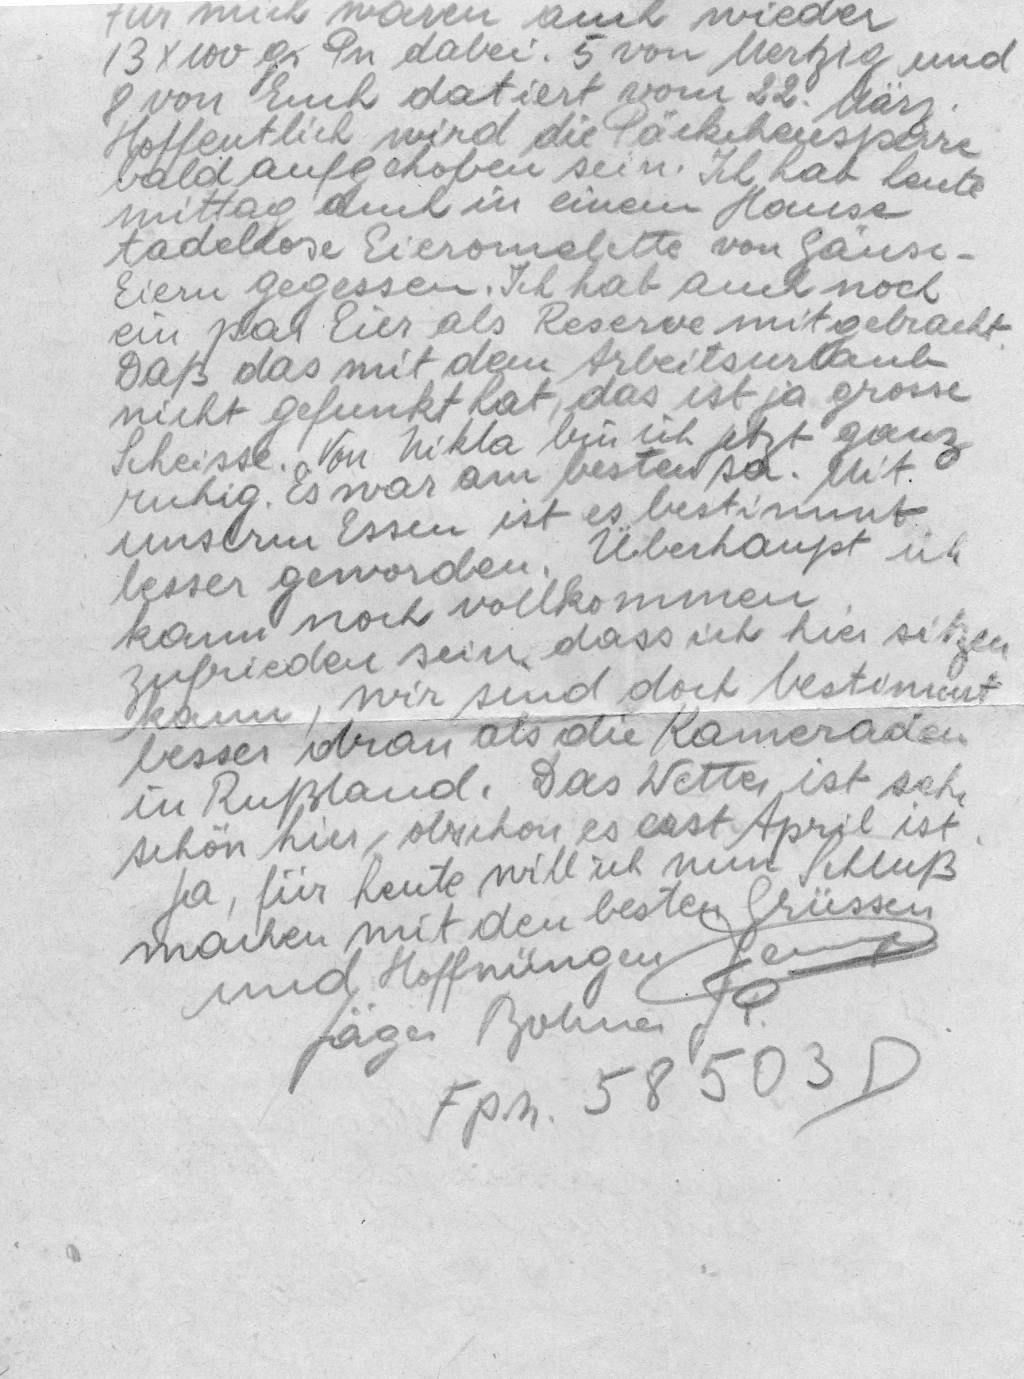 Für mich waren auch wieder
13 x 100 gr Pn dabei. 5 von Mertzig und
8 von Euch datiert vom 22. März.
Hoffentlich wird die Päckchensperre
bald aufgehoben sein. Ich hab heute
mittag auch in einem Hause
tadellose Eieromelette von Gänse-
Eiern gegessen. Ich hab auch noch
ein par Eier als Reserve mitgebracht.
Daß das mit dem Arbeitsurlaub
nicht gefunkt hat, das ist ja grosse
Scheisse. Von Nikla bin ich jetzt ganz
ruhig. Es war am besten so. Mit
unserm Essen ist es bestimmt
besser geworden. Überhaupt ich
kann noch vollkommen
zufrieden sein, dass ich hier sitzen
kann, wir sind doch bestimmt
besser dran als die Kameraden
in Rußland. Das Wetter ist sehr
schön hier, obschon es erst April ist.
Ja, für heute will ich nun Schluß
machen mit den besten Grüssen
und Hoffnungen
Jäger Bohner
Fpn. 58503 D